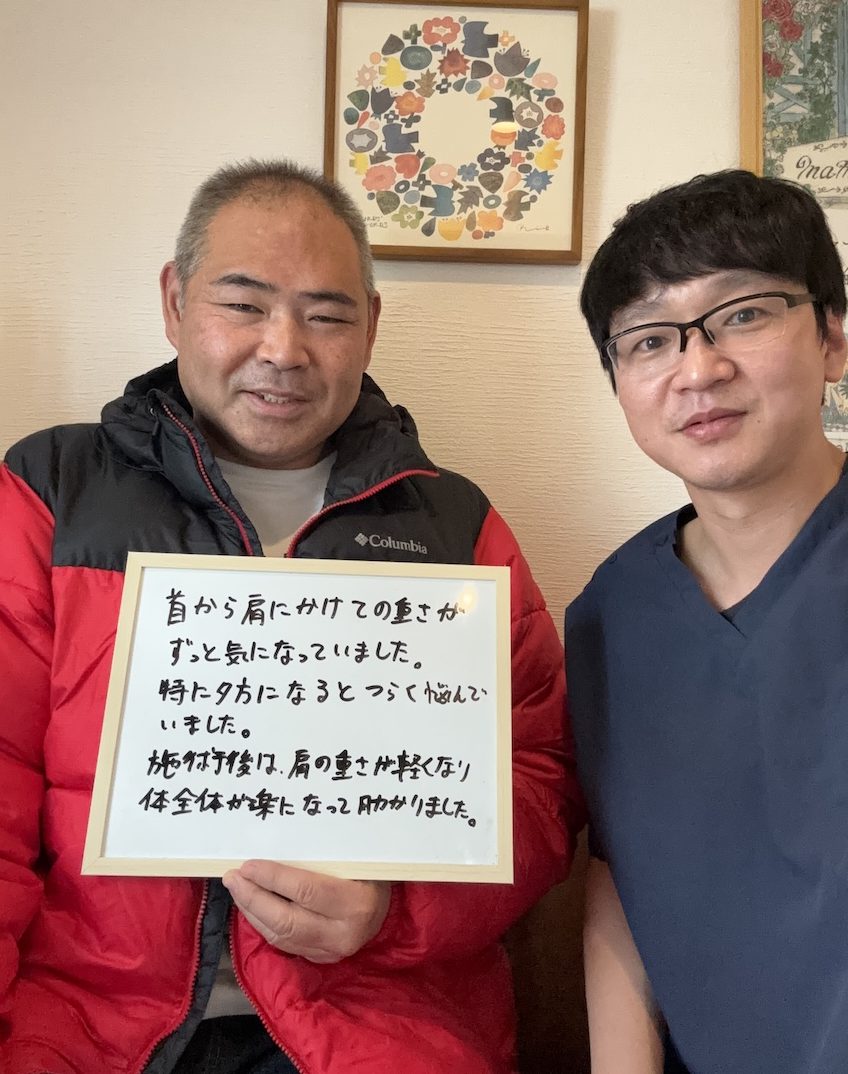 Columbia
首から肩にかけての重さが
ずっと気になっていました。
特に夕方になるとつらく悩んで
いました。
施術後は、肩の重さが軽くなり
体全体が楽になって助かりました。